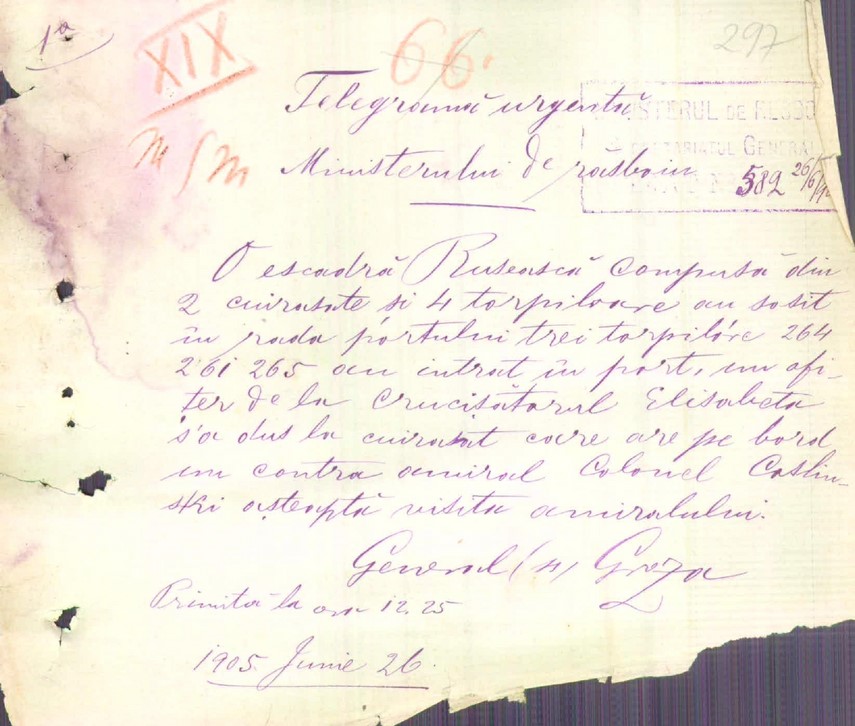 1a
XIX
66.
297
Telegramă urgentă
MINISTERUL DE RESBOI
SECRETARIATUL GENERAL
Ministerului de rasboiu
582 26/6/
O escadră Rusească compusă din
2 cuirasate si 4 torpiloare au sosit
în rada portului trei torpilóre 264
261 265 au intrat în port, un ofi-
ter de la crucisătorul Elisabeta
s'a dus la cuirasat care are pe bord
un contra amiral Colonel Coslin-
ski așteaptă visita amiralului.
General (ss) Greza
Primita la ora 12.25
1905 Junie 26.